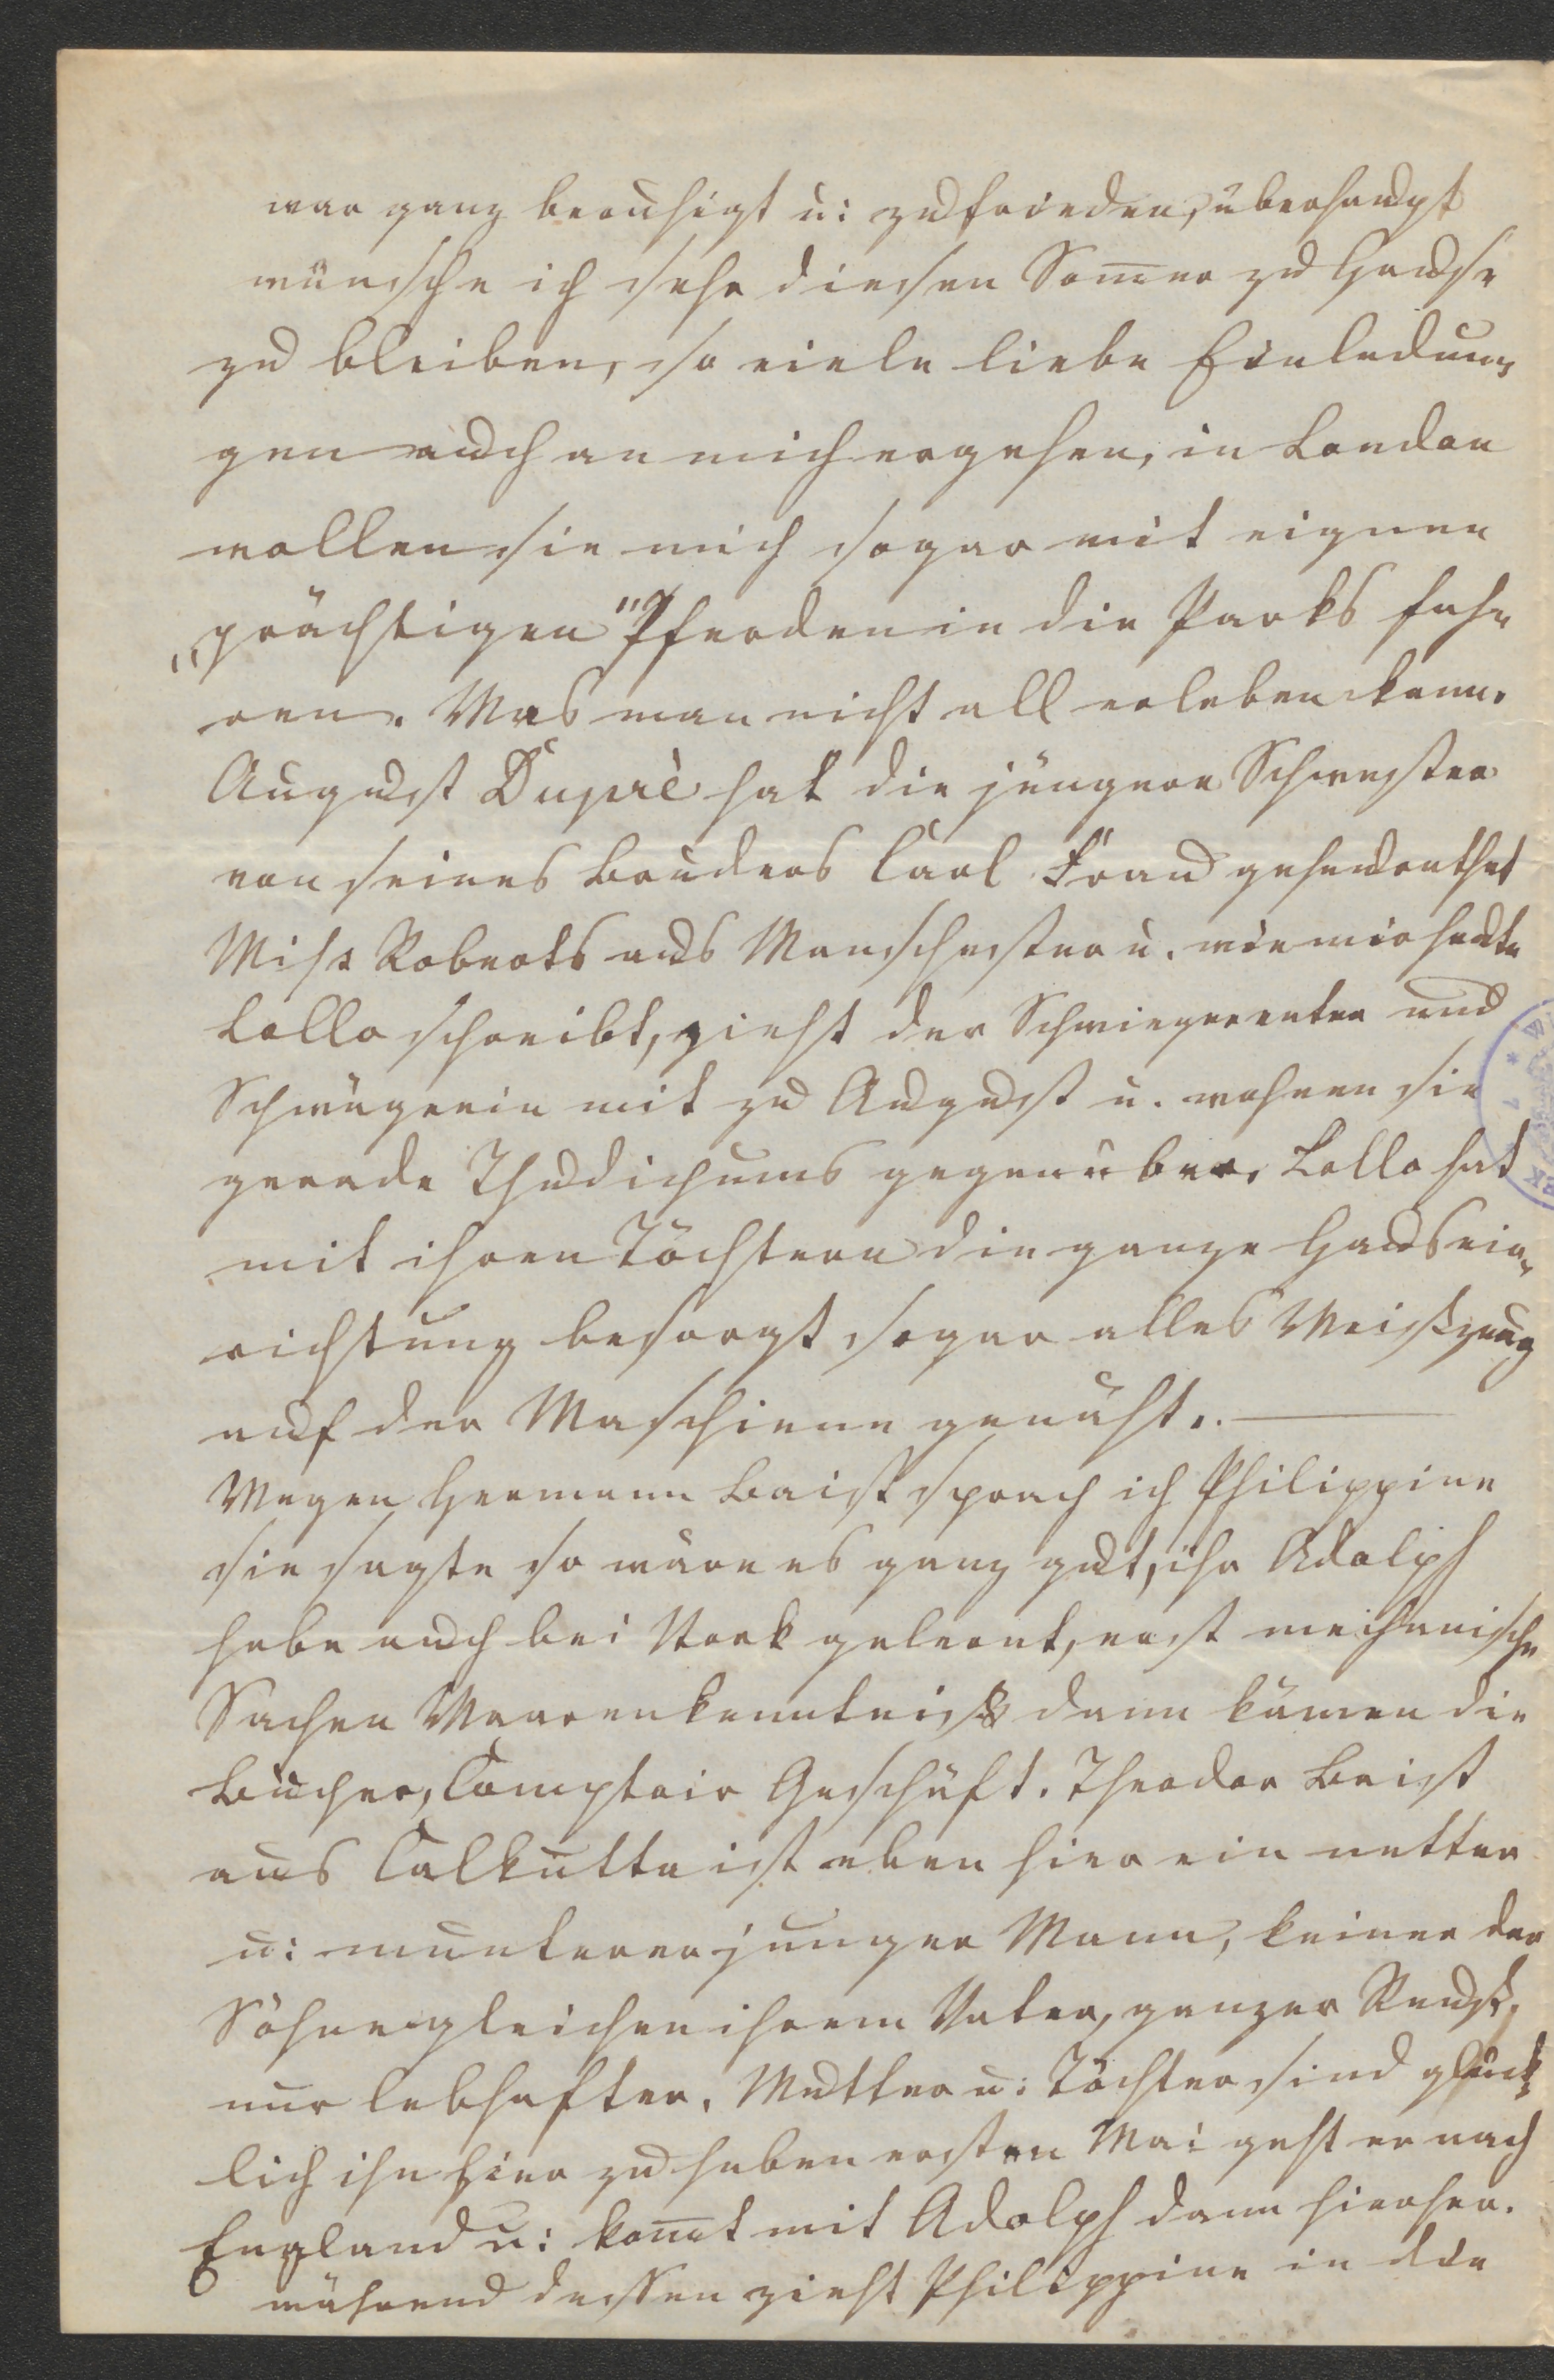 war ganz beruhigt u: zufrieden, überhaupt
wünsche ich sehr diesen Som̄er zu Hause
zu bleiben, so viele liebe Einladun„
gen auch an mich ergehen, in London
wollen sie mich sogar mit eignen
„prächtigen" Pferden in die Parks fah„
ren. Was man nicht all erleben kann.
August Dupré hat die jüngere Schwester
von seines Bruders Carl Frau geheurathet
Miss Roberts aus Manschester u. wie mir heute
Lollo schreibt, zieht der Schwiegervater und
Schwägerin mit zu August u. wohnen sie
gerade Thudichums gegenüber, Lollo hat
mit ihren Töchtern die ganze Hausein„
richtung besorgt sogar alles Weißzeug
auf der Maschiene genäht. —
Wegen Hermann Baist sprach ich Philippine
sie sagte so wäre es ganz gut, ihr Adolph
habe auch bei Stork gelernt, erst mechanische
Sachen Waarenkenntniß dann kämen die
Bücher, Comptoir Geschäft. Theodor Baist
aus Calkutta ist eben hier ein netter
u: munterer junger Mann, keiner der
Söhne gleichen ihrem Vater, ganzer
nur lebhafter. Mutter u: Töchter sind glück„
lich ihn hier zu haben ersten Mai geht er nach
England u: kom̄t mit Adolph dann hierher.
während dessen zieht Philippine in die